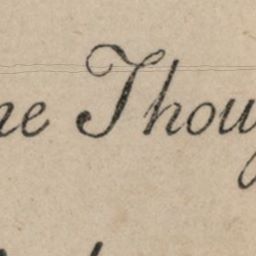 ne Thoug